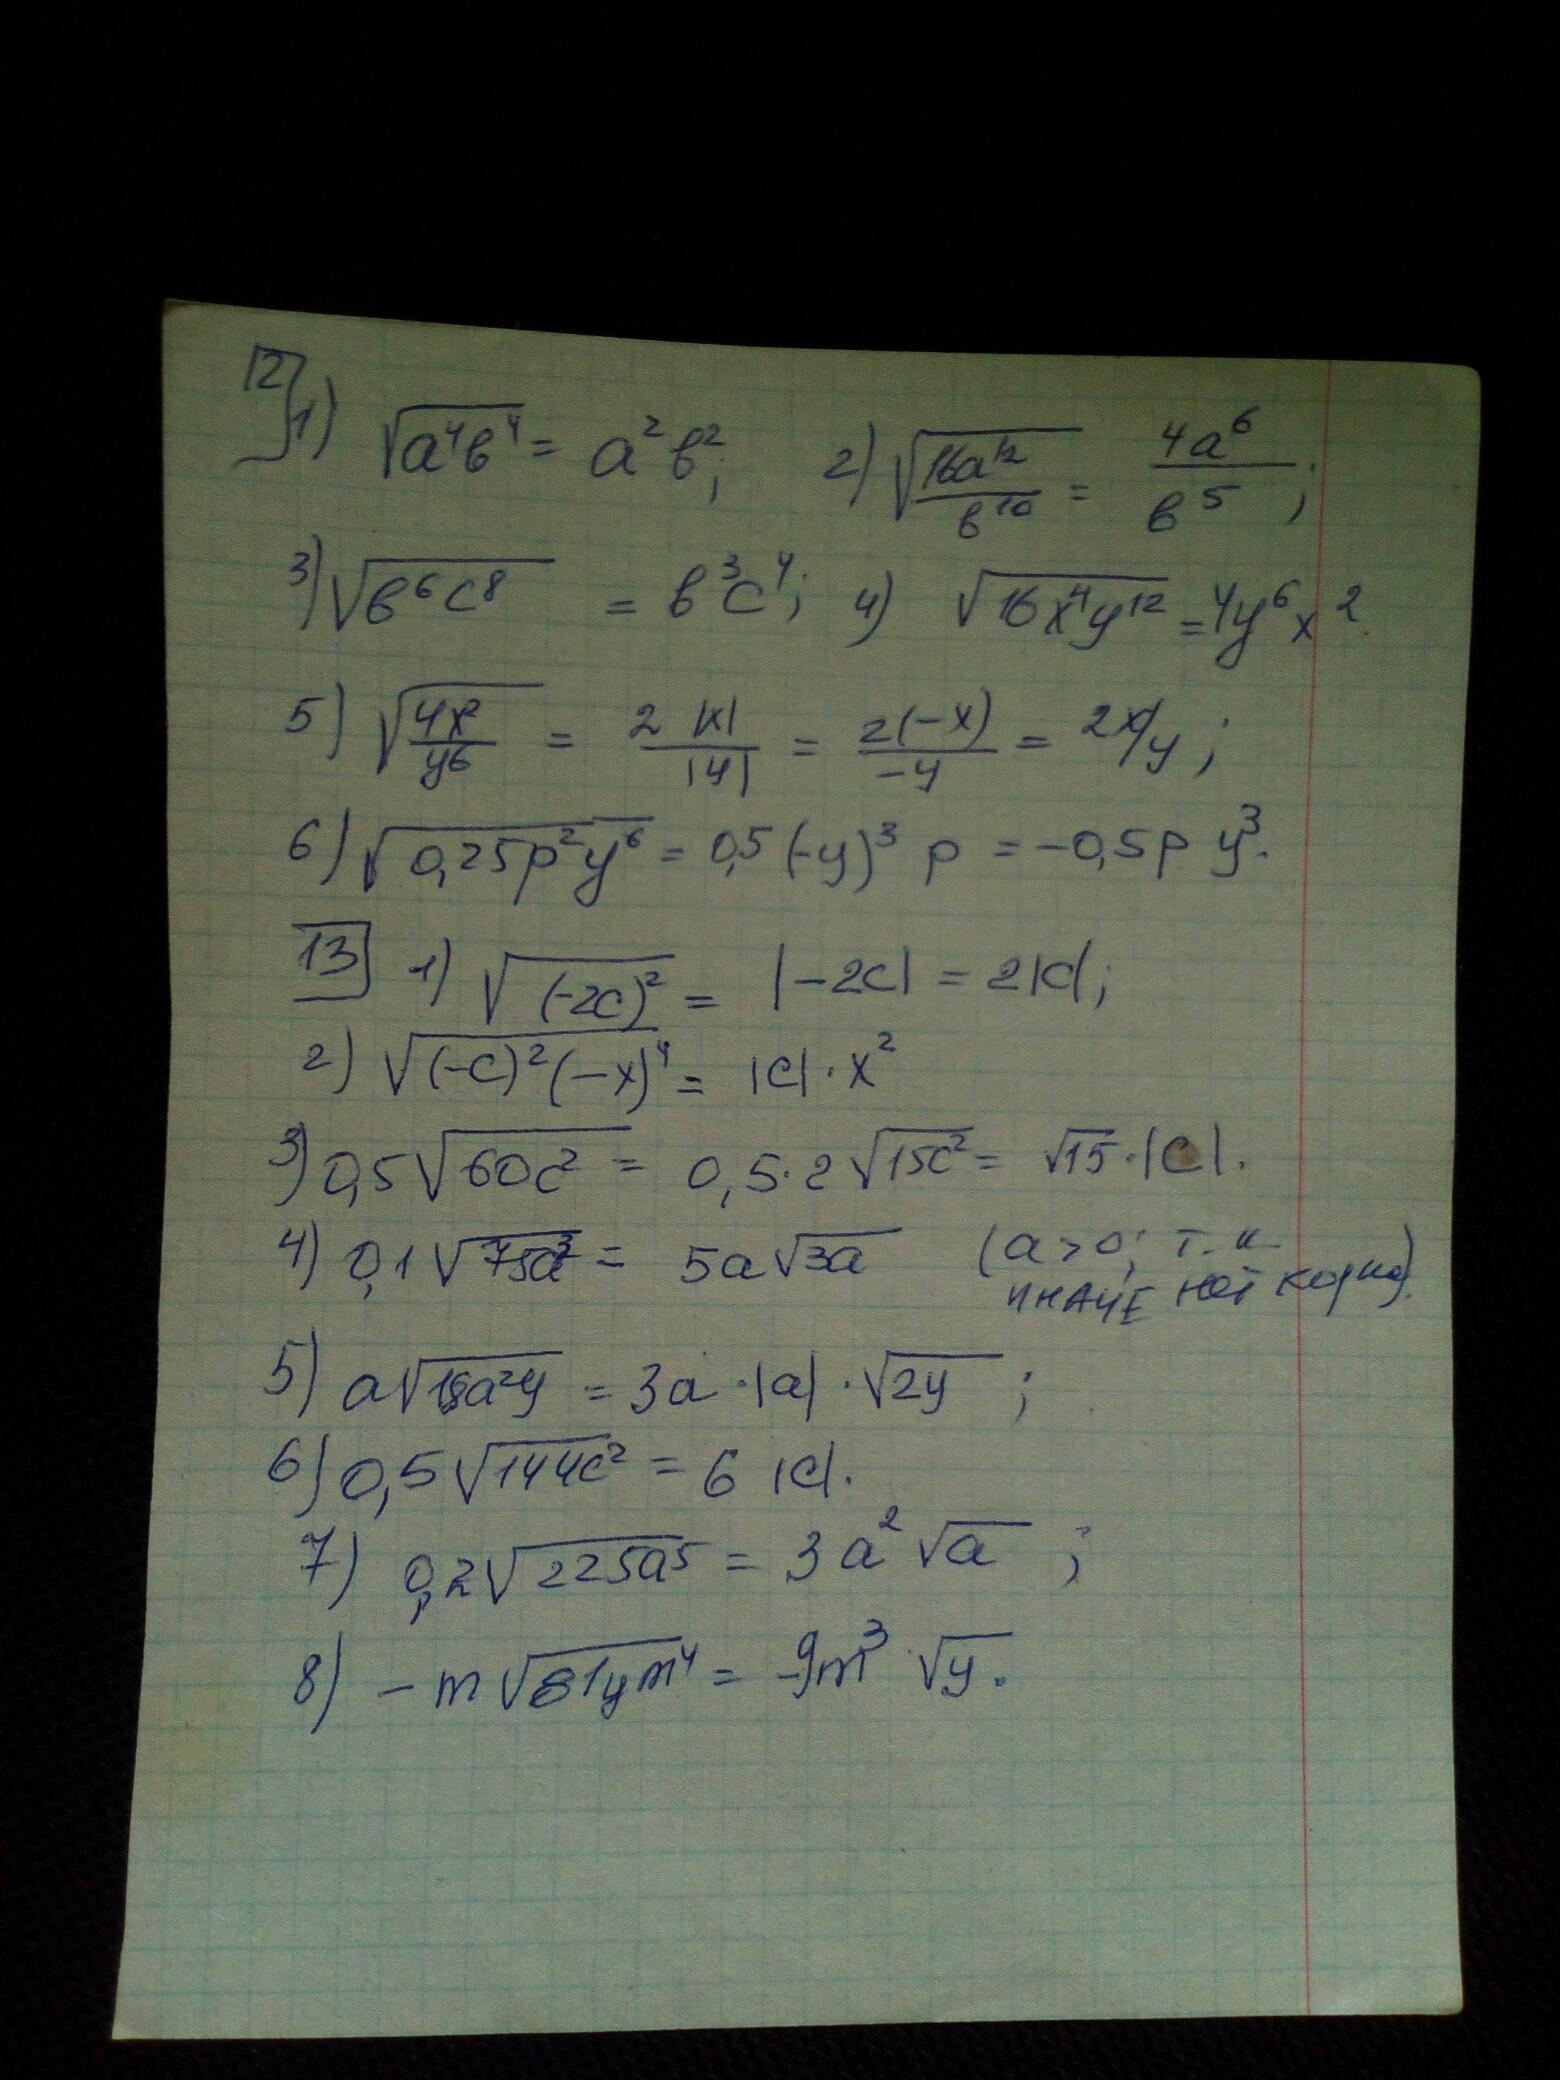 12 1) √(a⁴b⁴) = a²b²; 2) √(16a¹²/b¹⁰) = 4a⁶/b⁵;
3) √(b⁶c⁸) = b³c⁴; 4) √(16x⁴y¹²) = 4y⁶x².
5) √(4x²/y⁶) = 2|x|/|y| = 2(-x)/-y = 2x/y;
6) √(0,25p²y⁶) = 0,5(-y)³p = -0,5py³.
13 1) √((-2c)²) = |-2c| = 2|c|;
2) √((-c)²(-x)⁴) = |c|·x²
3) 0,5√(60c²) = 0,5·2√(15c²) = √15·|c|.
4) 0,1√(75a³) = 5a√(3a) (a>0; т.к.
иначе нет корня).
5) a√(18a²y) = 3a·|a|·√(2y);
6) 0,5√(144c²) = 6|c|.
7) 0,2√(225a⁵) = 3a²√a;
8) -m√(81ym⁴) = -9m³√y.